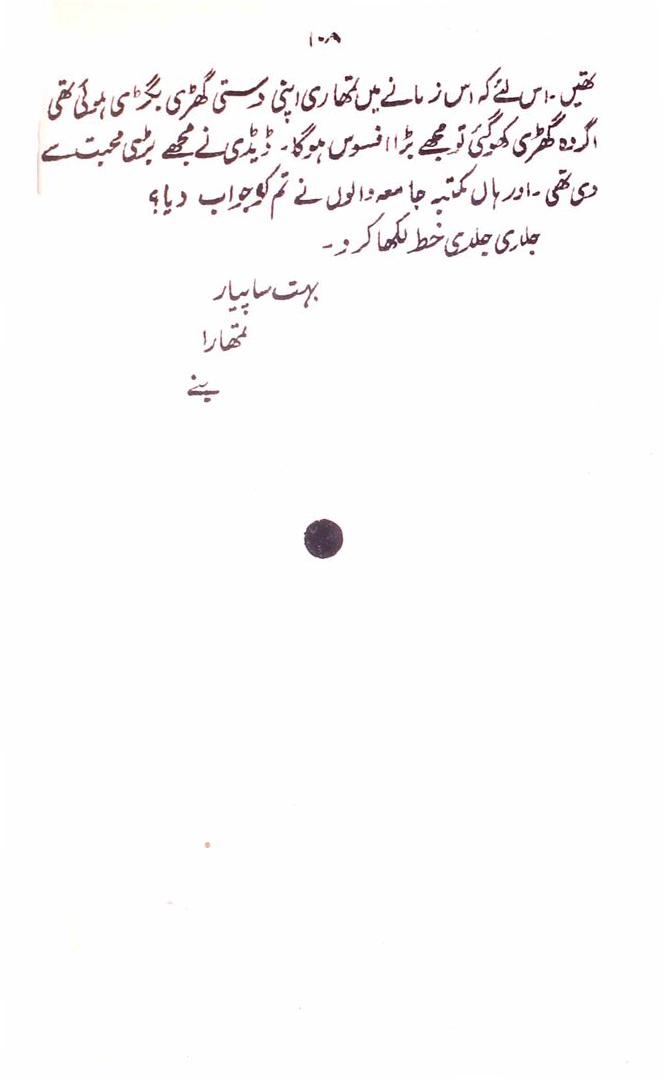 ۱۰۸
تھیں ۔ اس لئے کہ اس زمانے میں تمھاری اپنی دستی گھڑی بگڑی ہوئی تھی
اگر وہ گھڑی کھو گئی تو مجھے بڑا افسوس ہوگا ۔ ڈیڈی نے مجھے بڑی محبت سے
دی تھی ۔ اور ہاں مکتبہ جامعہ والوں نے تم کو جواب دیا؟
جلدی جلدی خط لکھا کرو ۔
بہت سا پیار
تمھارا
بنے